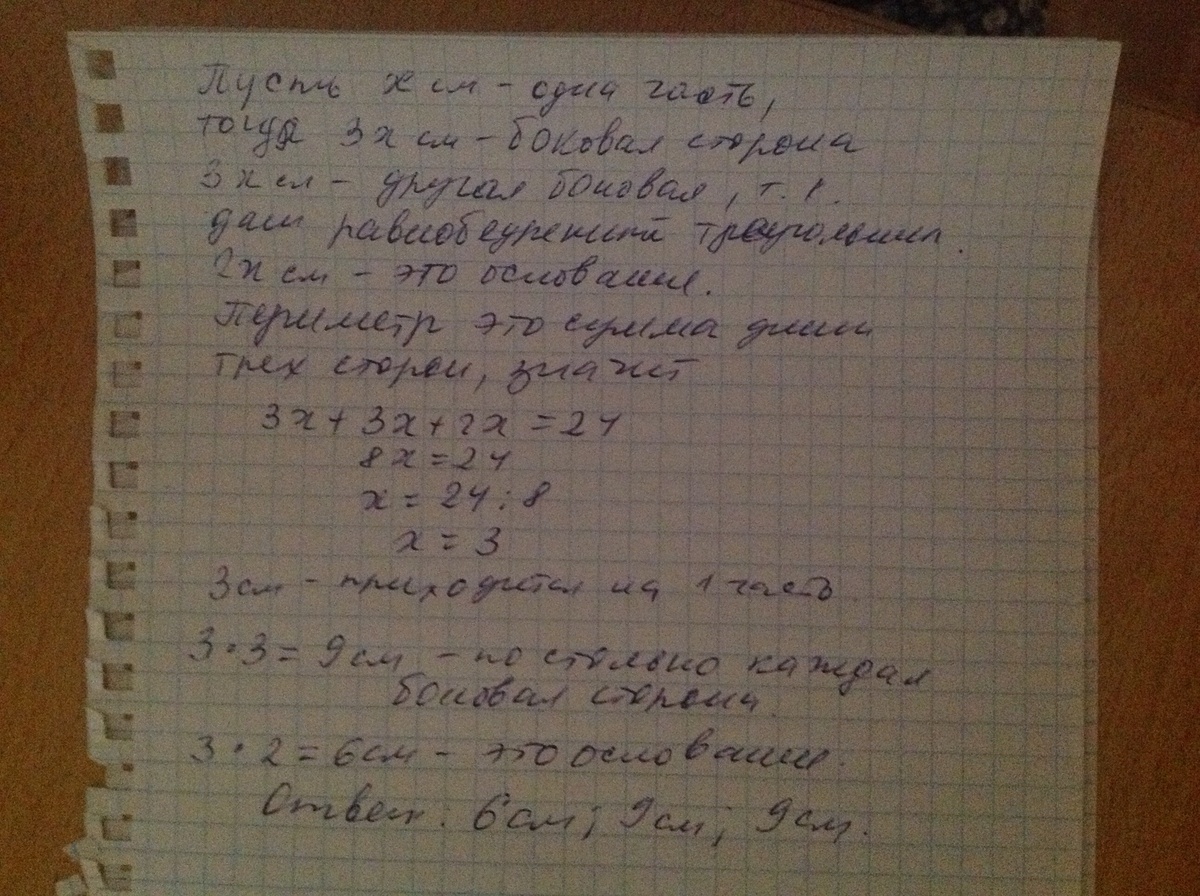 Пусть x см - одна часть,
тогда 3x см - боковая сторона
3x см - другая боковая, т. к.
дан равнобедренный треугольник.
2x см - это основание.
Периметр это сумма длин
трех сторон, значит
3x + 3x + 2x = 24
8x = 24
x = 24 : 8
x = 3
3 см - приходится на 1 часть.
3 · 3 = 9 см - по столько каждая
боковая сторона.
3 · 2 = 6 см - это основание.
Ответ: 6 см; 9 см; 9 см.